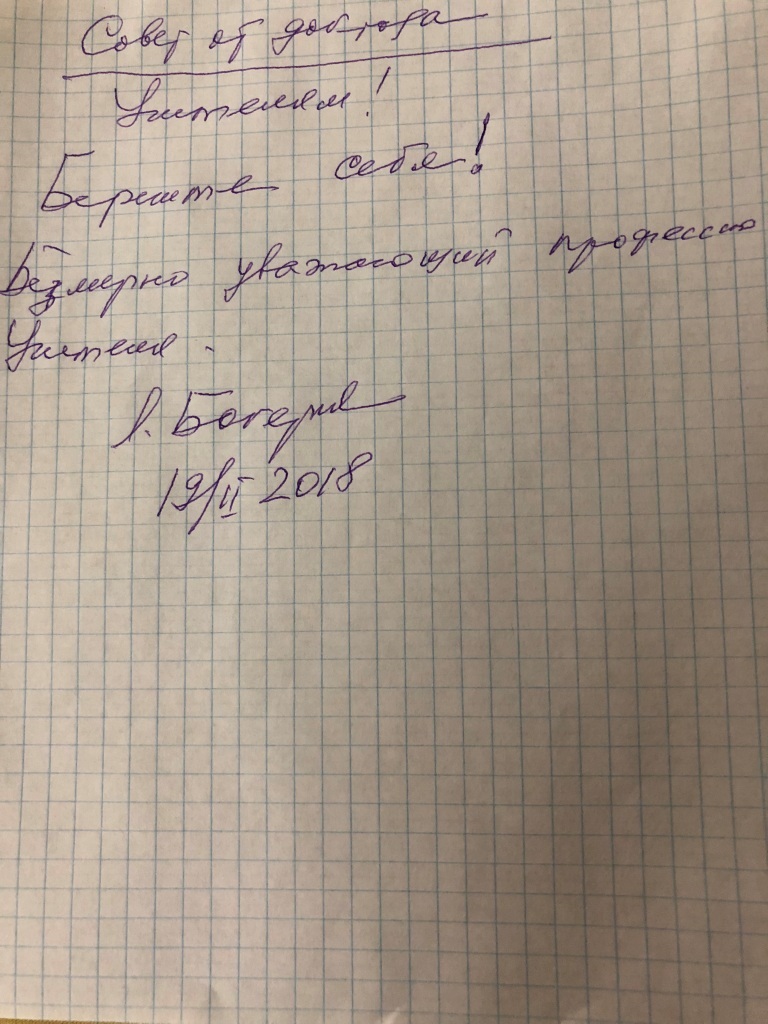 Совет от доктора
Учителям!
Берегите себя!
Безмерно уважающий профессию
Учителя.
Л. Бокерия
19/II 2018